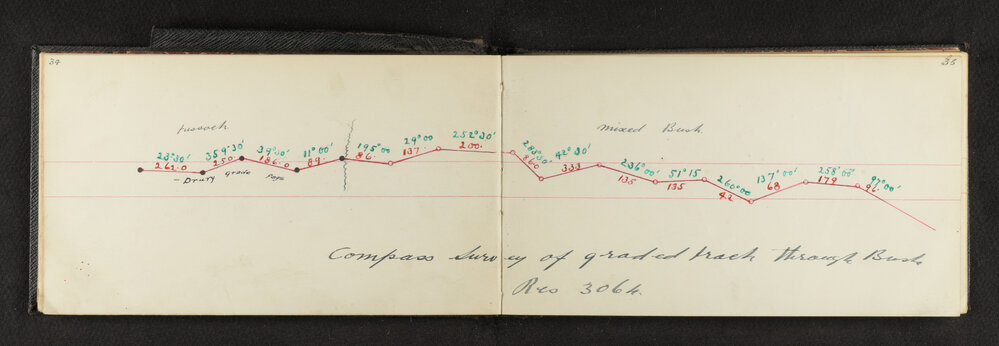 34
35
tussock
mixed Bush
23°30' 359°30' 39°30' 11°00' 195°00 29°00 252°30' 285°30' 42°30' 236°00' 51°15 260°00' 137°00' 258°00' 97°00'
262.0 250. 186.0 89. 86. 137. 200. 860 333 135 135 42 68 179 96.
Drury grade Pegs
Compass Survey of graded track through Bush
Res 3064.